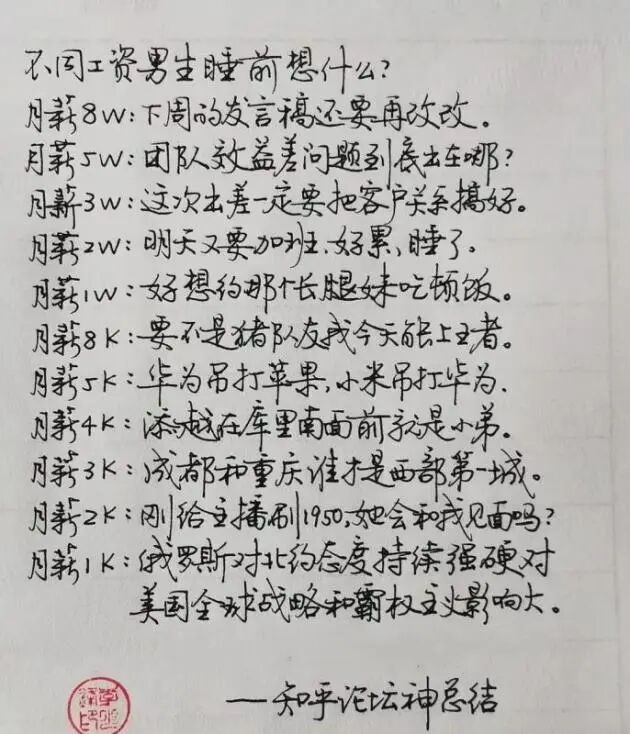 不同工资男生睡前想什么?
月薪8W:下周的发言稿还要再改改。
月薪5W:团队效益差问题到底出在哪?
月薪3W:这次出差一定要把客户关系搞好。
月薪2W:明天又要加班、好累,睡了.
月薪1W:好想约那个长腿妹吃顿饭。
月薪8K:要不是猪队友我今天能上王者。
月薪5K:华为吊打苹果,小米吊打华为.
月薪4K:添越在库里南面前就是小弟。
月薪3K:成都和重庆谁才是西部第一城。
月薪2K:刚给主播刷1950,她会和我见面吗?
月薪1K:俄罗斯对北约态度持续强硬对
美国全球战略和霸权主义影响大。
——知乎论坛神总结